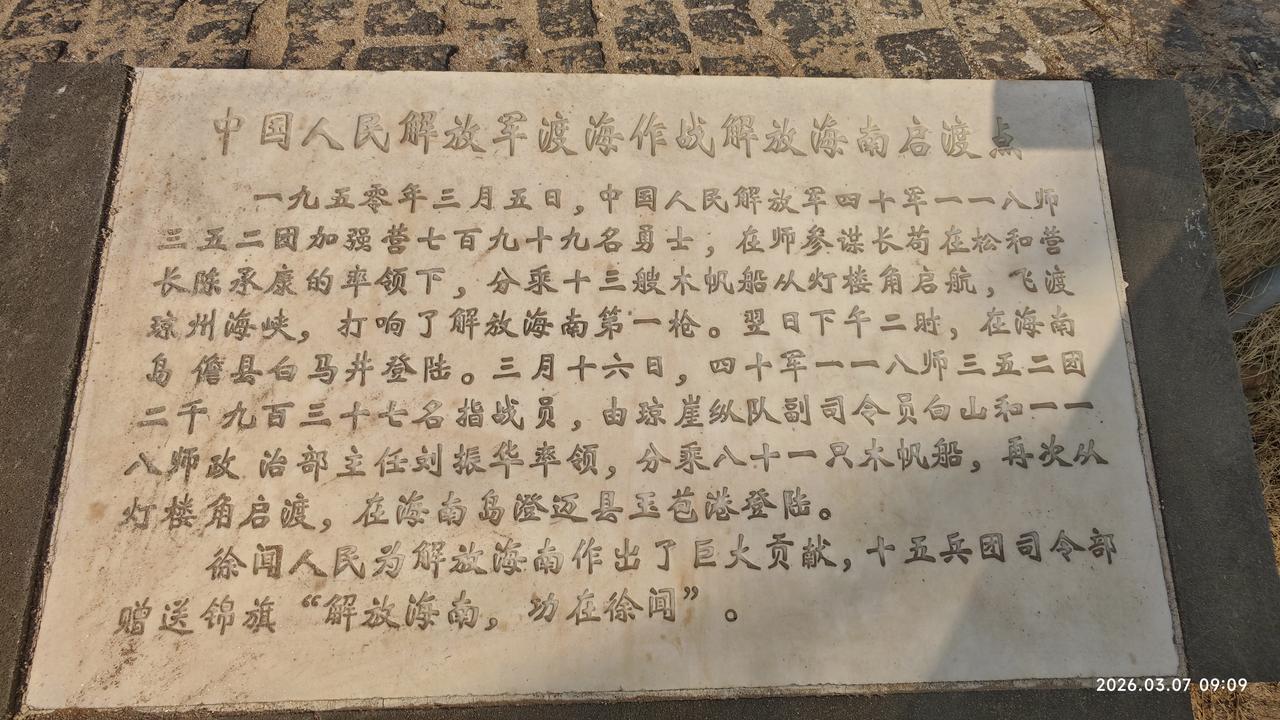 中国人民解放军渡海作战解放海南启渡点
一九五零年三月五日，中国人民解放军四十军一一八师
三五二团加强营七百九十九名勇士，在师参谋长苟在松和营
长陈承康的率领下，分乘十三艘木帆船从灯楼角启航，飞渡
琼州海峡，打响了解放海南第一枪。翌日下午二时，在海南
岛儋县白马井登陆。三月十六日，四十军一一八师三五二团
二千九百三十七名指战员，由琼崖纵队副司令员白山和一一
八师政治部主任刘振华率领，分乘八十一只木帆船，再次从
灯楼角启渡，在海南岛澄迈县玉苞港登陆。
徐闻人民为解放海南作出了巨大贡献，十五兵团司令部
赠送锦旗“解放海南，功在徐闻”。
2026.03.07 09:09